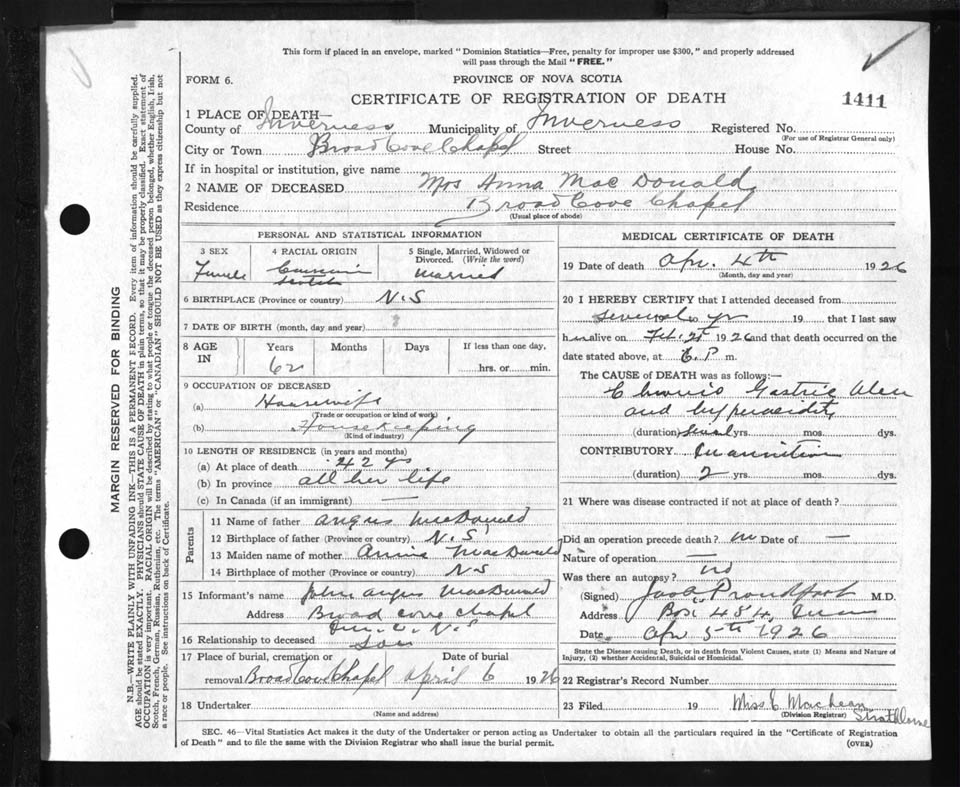 This form if placed in an envelope, marked "Dominion Statistics—Free, penalty for improper use $300," and properly addressed
will pass through the Mail "FREE."
FORM 6.
PROVINCE OF NOVA SCOTIA
CERTIFICATE OF REGISTRATION OF DEATH
1411
1 PLACE OF DEATH—
County of Inverness Municipality of Inverness Registered No.
(For use of Registrar General only)
City or Town Broad Cove Chapel Street House No.
If in hospital or institution, give name
2 NAME OF DECEASED Mrs Anna MacDonald
Residence Broad Cove Chapel
(Usual place of abode)
PERSONAL AND STATISTICAL INFORMATION
3 SEX 4 RACIAL ORIGIN 5 Single, Married, Widowed or Divorced. (Write the word)
Female Scotch Married
6 BIRTHPLACE (Province or country) N.S
7 DATE OF BIRTH (month, day and year)
8 AGE IN Years Months Days If less than one day,
62 hrs. or min.
9 OCCUPATION OF DECEASED
(a) Housewife
(Trade or occupation or kind of work)
(b) Housekeeping
(Kind of industry)
10 LENGTH OF RESIDENCE (in years and months)
(a) At place of death 42 yrs
(b) In province all her life
(c) In Canada (if an immigrant) —
Parents
11 Name of father Angus MacDonald
12 Birthplace of father (Province or country) N.S
13 Maiden name of mother Annie MacDonald
14 Birthplace of mother (Province or country) N.S
15 Informant's name John Angus MacDonald
Address Broad Cove Chapel
Inv. C. N.S
16 Relationship to deceased Son
17 Place of burial, cremation or removal Broad Cove Chapel Date of burial April 6 1926
18 Undertaker
(Name and address)
MEDICAL CERTIFICATE OF DEATH
19 Date of death Apr. 4th 1926
(Month, day and year)
20 I HEREBY CERTIFY that I attended deceased from
several to yr 19 that I last saw
h alive on Feb. 1926 and that death occurred on the
date stated above, at P m.
The CAUSE OF DEATH was as follows:—
Chronic Gastric Ulcer
and hyperacidity
(duration) several yrs. mos. dys.
CONTRIBUTORY Inanition
(duration) 2 yrs. mos. dys.
21 Where was disease contracted if not at place of death?
Did an operation precede death? no Date of —
Nature of operation —
Was there an autopsy? no
(Signed) Jas A Proudfoot M.D.
Address Box 484,
Date Apr 5th 1926
State the Disease causing Death, or in death from Violent Causes, state (1) Means and Nature of
Injury, (2) whether Accidental, Suicidal or Homicidal.
22 Registrar's Record Number
23 Filed 19 Miss C. MacLean
(Division Registrar) Strathlorne
SEC. 46—Vital Statistics Act makes it the duty of the Undertaker or person acting as Undertaker to obtain all the particulars required in the "Certificate of Registration
of Death" and to file the same with the Division Registrar who shall issue the burial permit. (OVER)
MARGIN RESERVED FOR BINDING
N.B.—WRITE PLAINLY WITH UNFADING INK—THIS IS A PERMANENT RECORD. Every item of information should be carefully supplied.
AGE should be stated EXACTLY. PHYSICIANS should STATE CAUSE OF DEATH in plain terms, so that it may be properly classified. Exact statement of
OCCUPATION is very important. RACIAL ORIGIN will be described by stating to what people or tongue the deceased person belonged, whether English, Irish,
Scotch, French, German, Russian, Ruthenian, etc. The terms "AMERICAN" or "CANADIAN" SHOULD NOT BE USED as they express citizenship but not
a race or people. See instructions on back of Certificate.